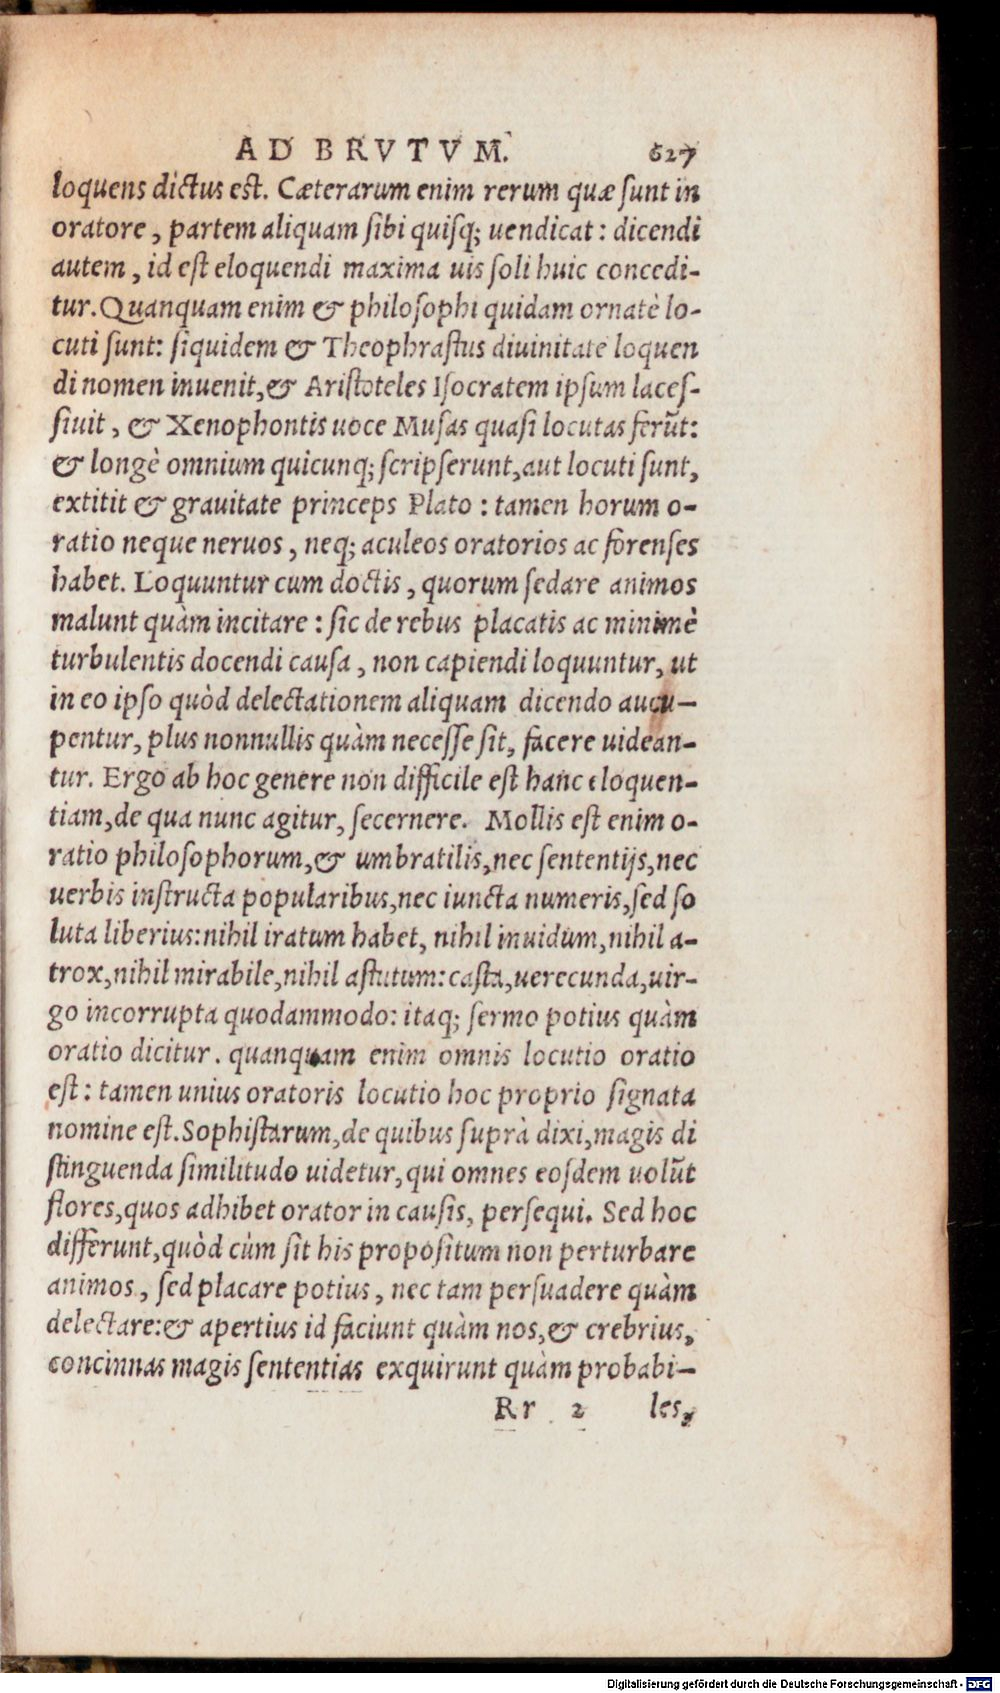 AD BRVTVM. 627
loquens dictus est. Cæterarum enim rerum quæ sunt in
oratore, partem aliquam sibi quisq; uendicat: dicendi
autem, id est eloquendi maxima uis soli huic concedi-
tur. Quanquam enim & philosophi quidam ornatè lo-
cuti sunt: siquidem & Theophrastus diuinitate loquen
di nomen inuenit, & Aristoteles Isocratem ipsum laces-
siuit, & Xenophontis uoce Musas quasi locutas ferũt:
& longè omnium quicunq; scripserunt, aut locuti sunt,
extitit & grauitate princeps Plato: tamen horum o-
ratio neque neruos, neq; aculeos oratorios ac forenses
habet. Loquuntur cum doctis, quorum sedare animos
malunt quàm incitare: sic de rebus placatis ac minimè
turbulentis docendi causa, non capiendi loquuntur, ut
in eo ipso quòd delectationem aliquam dicendo aucu-
pentur, plus nonnullis quàm necesse sit, facere uidean-
tur. Ergo ab hoc genere non difficile est hanc eloquen-
tiam, de qua nunc agitur, secernere. Mollis est enim o-
ratio philosophorum, & umbratilis, nec sententijs, nec
uerbis instructa popularibus, nec iuncta numeris, sed so
luta liberius: nihil iratum habet, nihil inuidum, nihil a-
trox, nihil mirabile, nihil astutum: casta, uerecunda, uir-
go incorrupta quodammodo: itaq; sermo potius quàm
oratio dicitur. quanquam enim omnis locutio oratio
est: tamen unius oratoris locutio hoc proprio signata
nomine est. Sophistarum, de quibus suprà dixi, magis di
stinguenda similitudo uidetur, qui omnes eosdem uolũt
flores, quos adhibet orator in causis, persequi. Sed hoc
differunt, quòd cùm sit his propositum non perturbare
animos, sed placare potius, nec tam persuadere quàm
delectare: & apertius id faciunt quàm nos, & crebrius,
concinnas magis sententias exquirunt quàm probabi-
Rr 2 les,
Digitalisierung gefördert durch die Deutsche Forschungsgemeinschaft - DFG